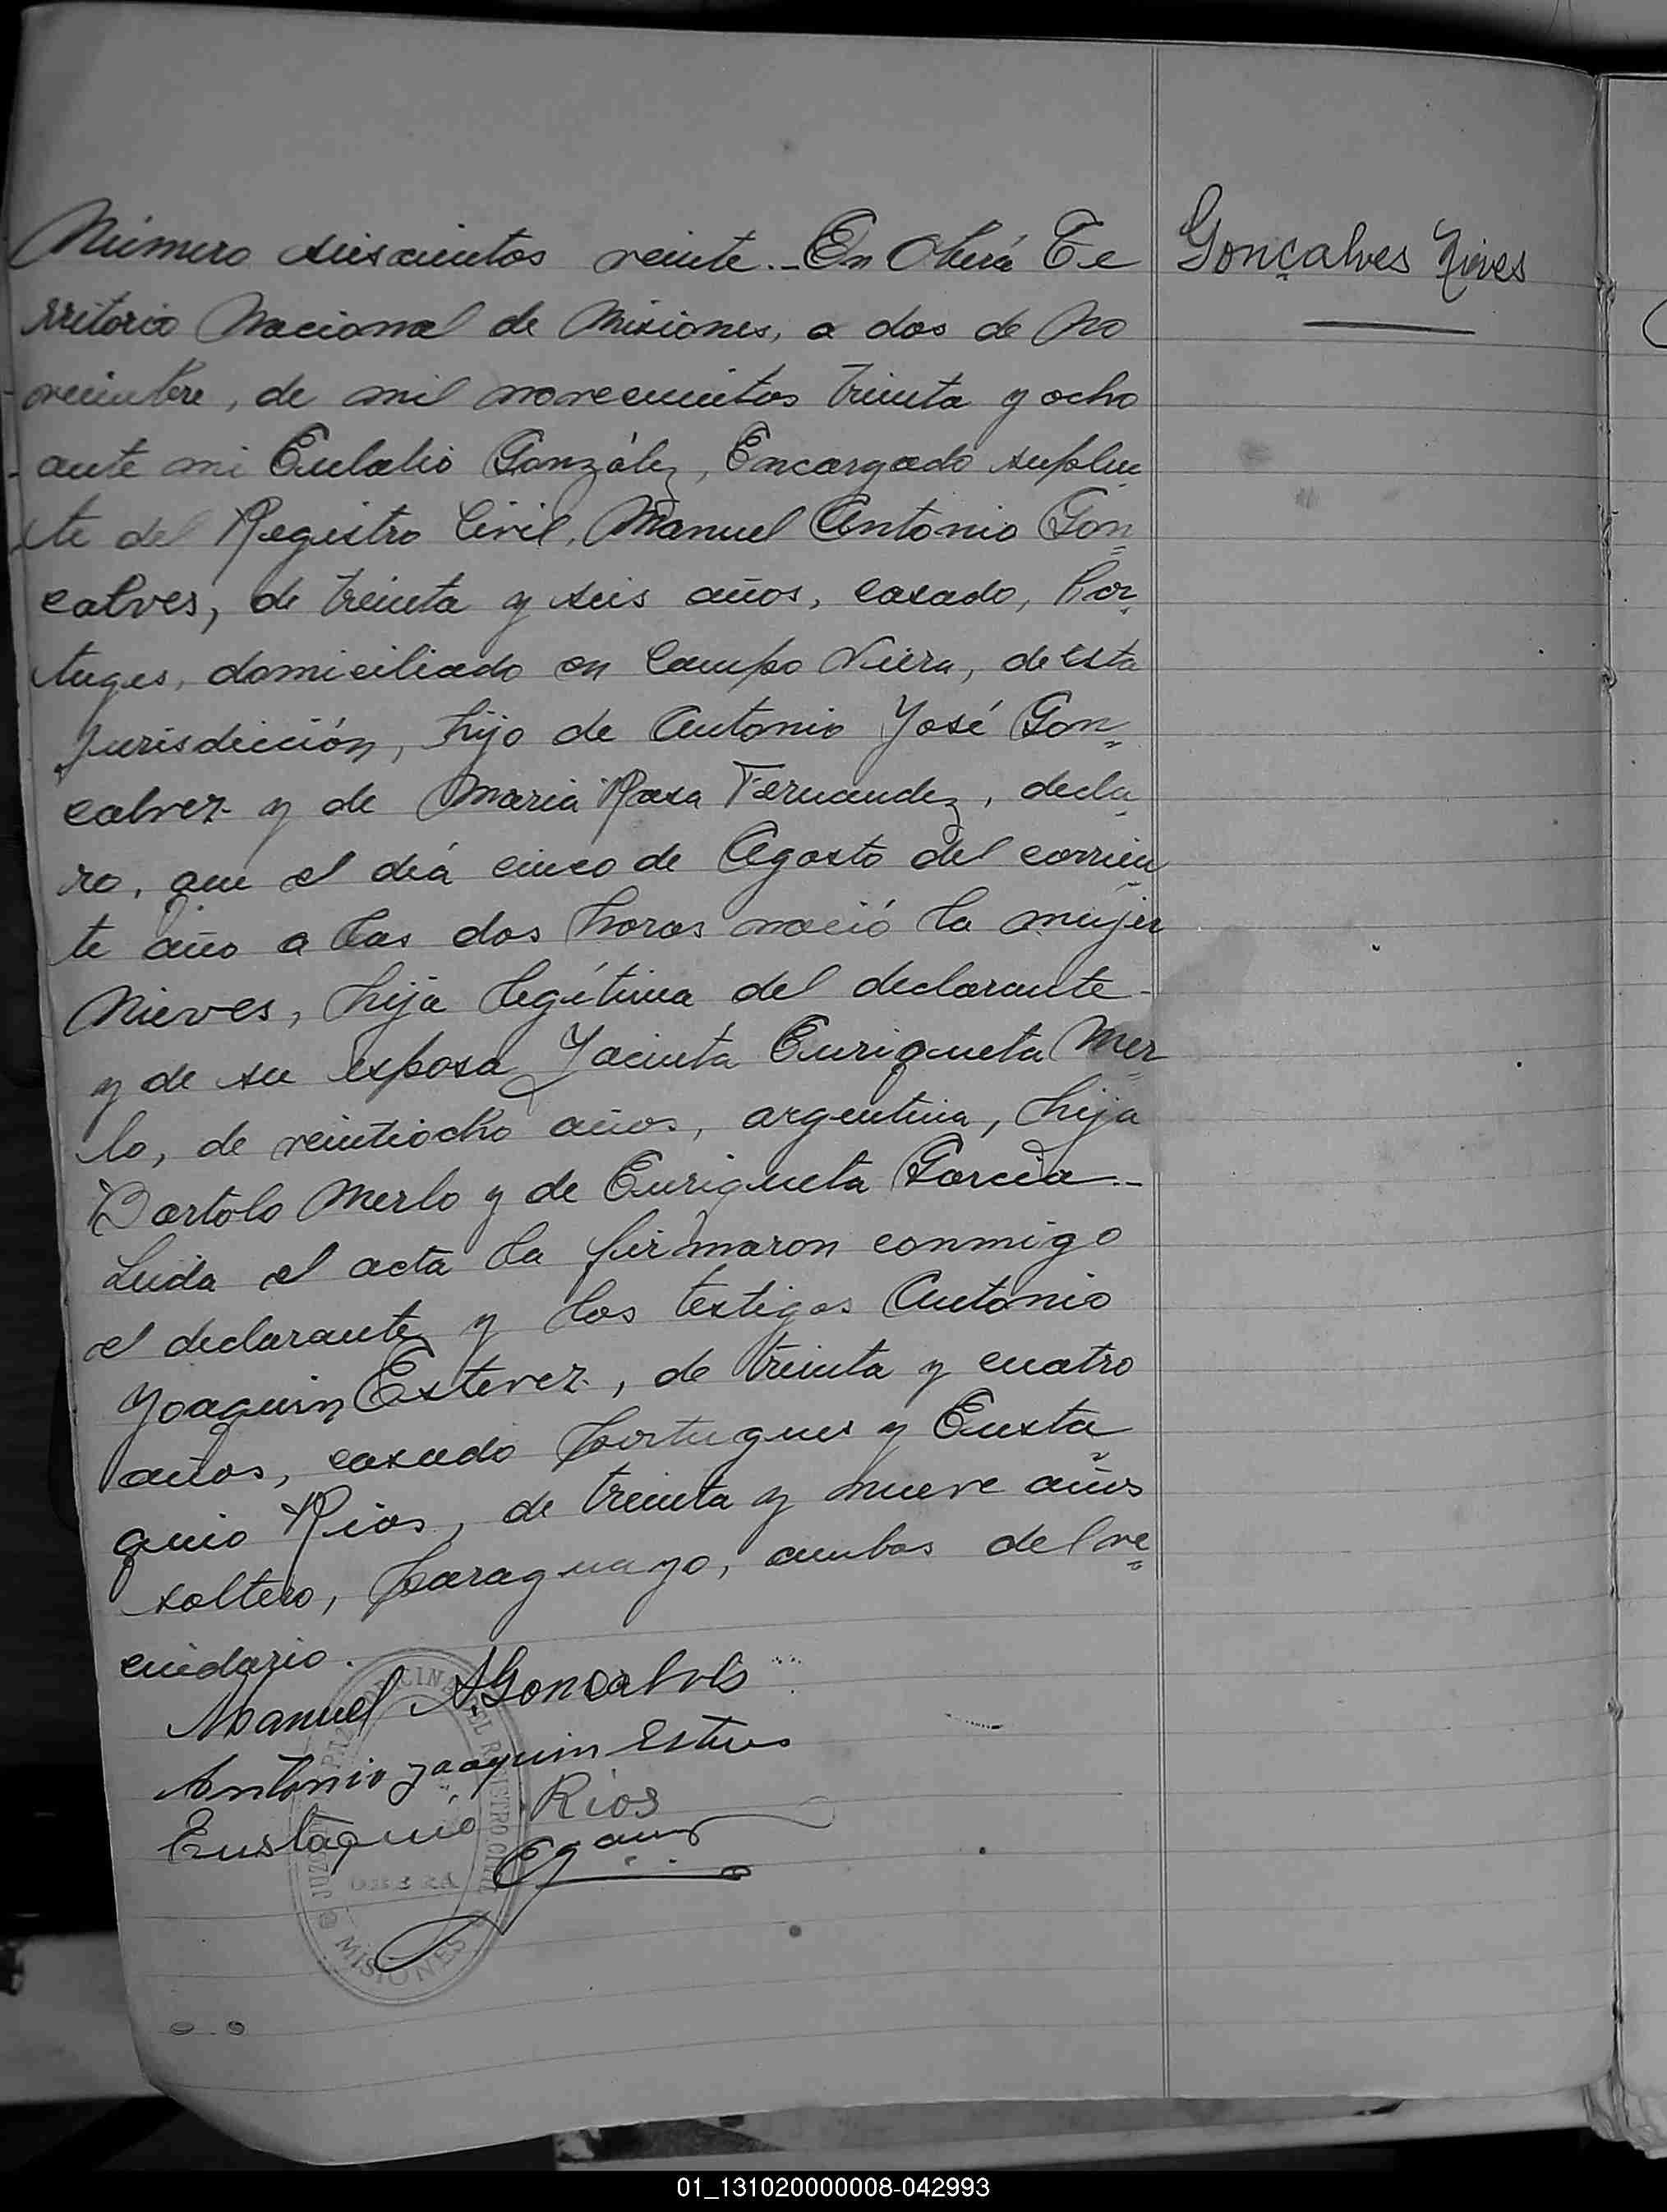 Número seiscientos veinte.- En Oberá Te
rritorio Nacional de Misiones, a dos de No
viembre, de mil novecientos treinta y ocho
ante mi Eulalio González, Encargado suplen
te del Registro Civil, Manuel Antonio Gon
calves, de treinta y seis años, casado, Por
tuges, domiciliado en Campo Viera, de esta
jurisdicción, hijo de Antonio José Gon
calvez y de Maria Rosa Fernandez, decla
ro, que el día cinco de Agosto del corrien
te año a las dos horas nació la mujer
Nieves, hija legítima del declarante
y de su esposa Jacinta Enriqueta Mer
lo, de veintiocho años, argentina, hija
Bartolo Merlo y de Enriqueta Garcia.-
Leida el acta la firmaron conmigo
el declarante y los testigos Antonio
Joaquin Estevez, de treinta y cuatro
años, casado portugues y Eusta
quio Rios, de treinta y nueve años
soltero, paraguayo, ambos del ve
cindario.
Manuel A. Goncalves
Antonio Joaquin Esteves
Eustaquio Rios
Gonçalves Nieves
OBERA
MISIONES
01_131020000008-042993